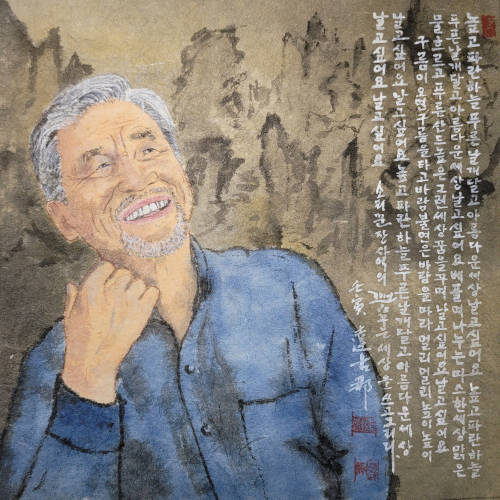 높고 파란 하늘 푸른 날개 달고 아름다운 세상 날고 싶어요 높고 파란 하늘
푸른 날개 달고 아름다운 세상 날고 싶어요 베풀며 나누는 미소한 세상 맑은
물 흐르고 푸른 산은 높은 그런 세상 꿈을 꾸며 날고 싶어요 날고 싶어요
구름이 오면 구름을 타고 바람 불면은 바람을 따라 멀리 멀리 높이 높이
날고 싶어요 날고 싶어요 높고 파란 하늘 푸른 날개 달고 아름다운 세상
날고 싶어요 날고 싶어요 소리꾼 장사익의 꿈꾸는 세상을 쓰고 그리다
壬寅